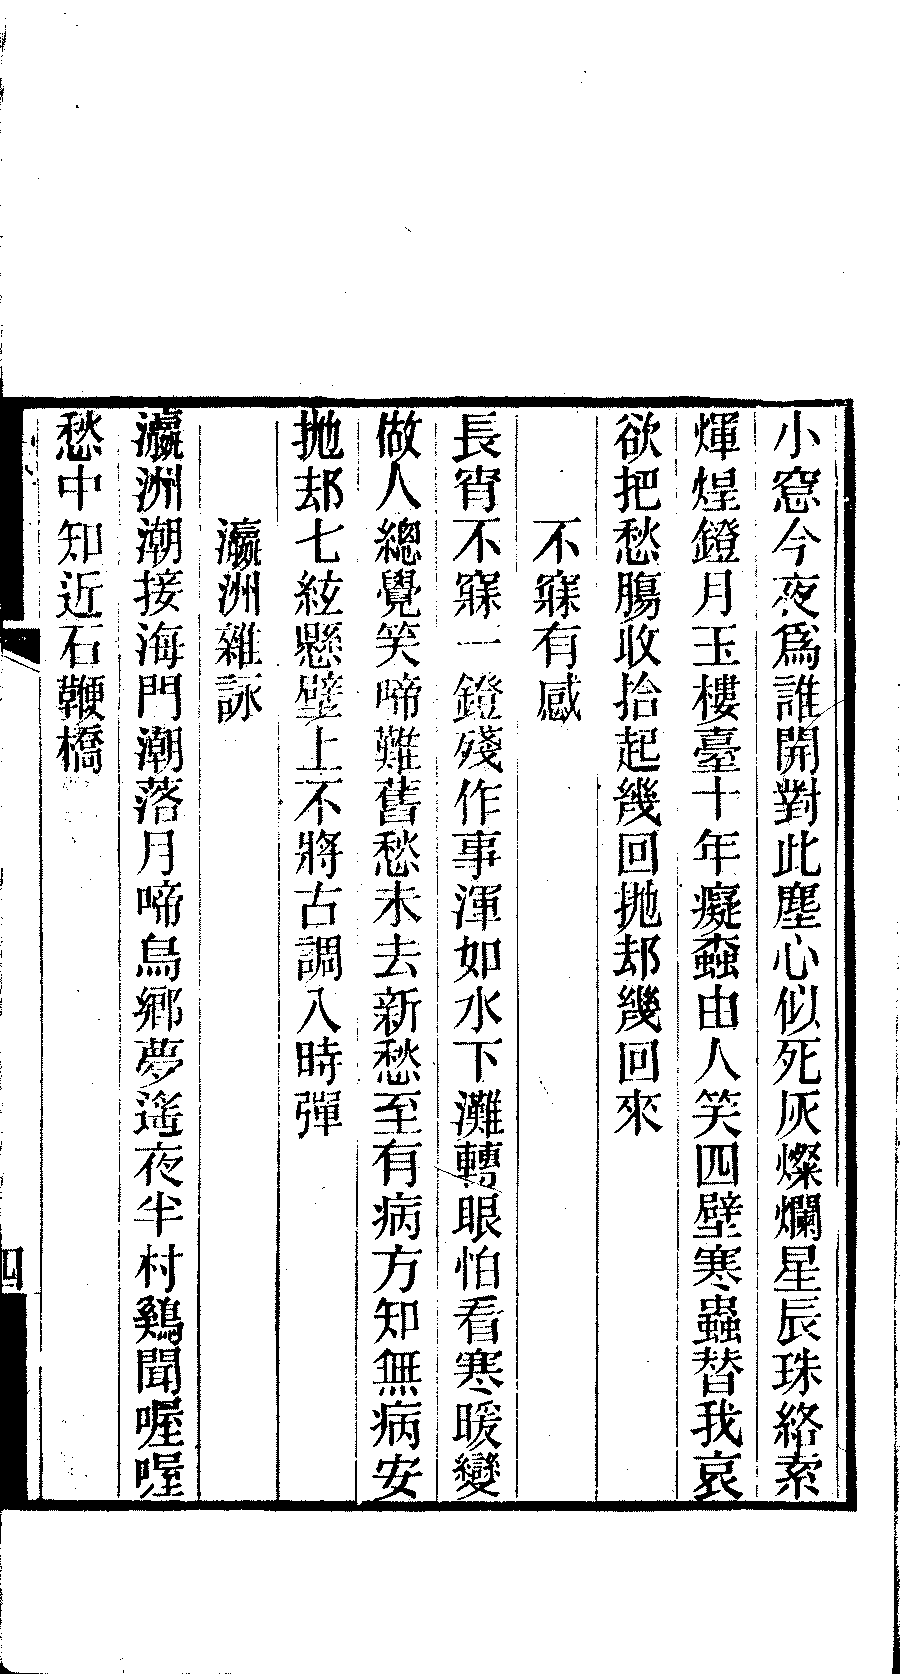 小窓今夜爲誰開對此塵心似死灰燦爛星辰珠絡索
煇煌鐙月玉樓臺十年癡蝡由人笑四壁寒蟲替我哀
欲把愁腸收拾起幾回抛却幾回來
不寐有感
長宵不寐一鐙殘作事渾如水下灘轉眼怕看寒暖變
做人總覺笑啼難舊愁未去新愁至有病方知無病安
抛却七絃懸壁上不將古調入時彈
瀛洲雜詠
瀛洲潮接海門潮落月啼烏鄉夢遙夜半村鷄聞喔喔
愁中知近石鞭橋
四